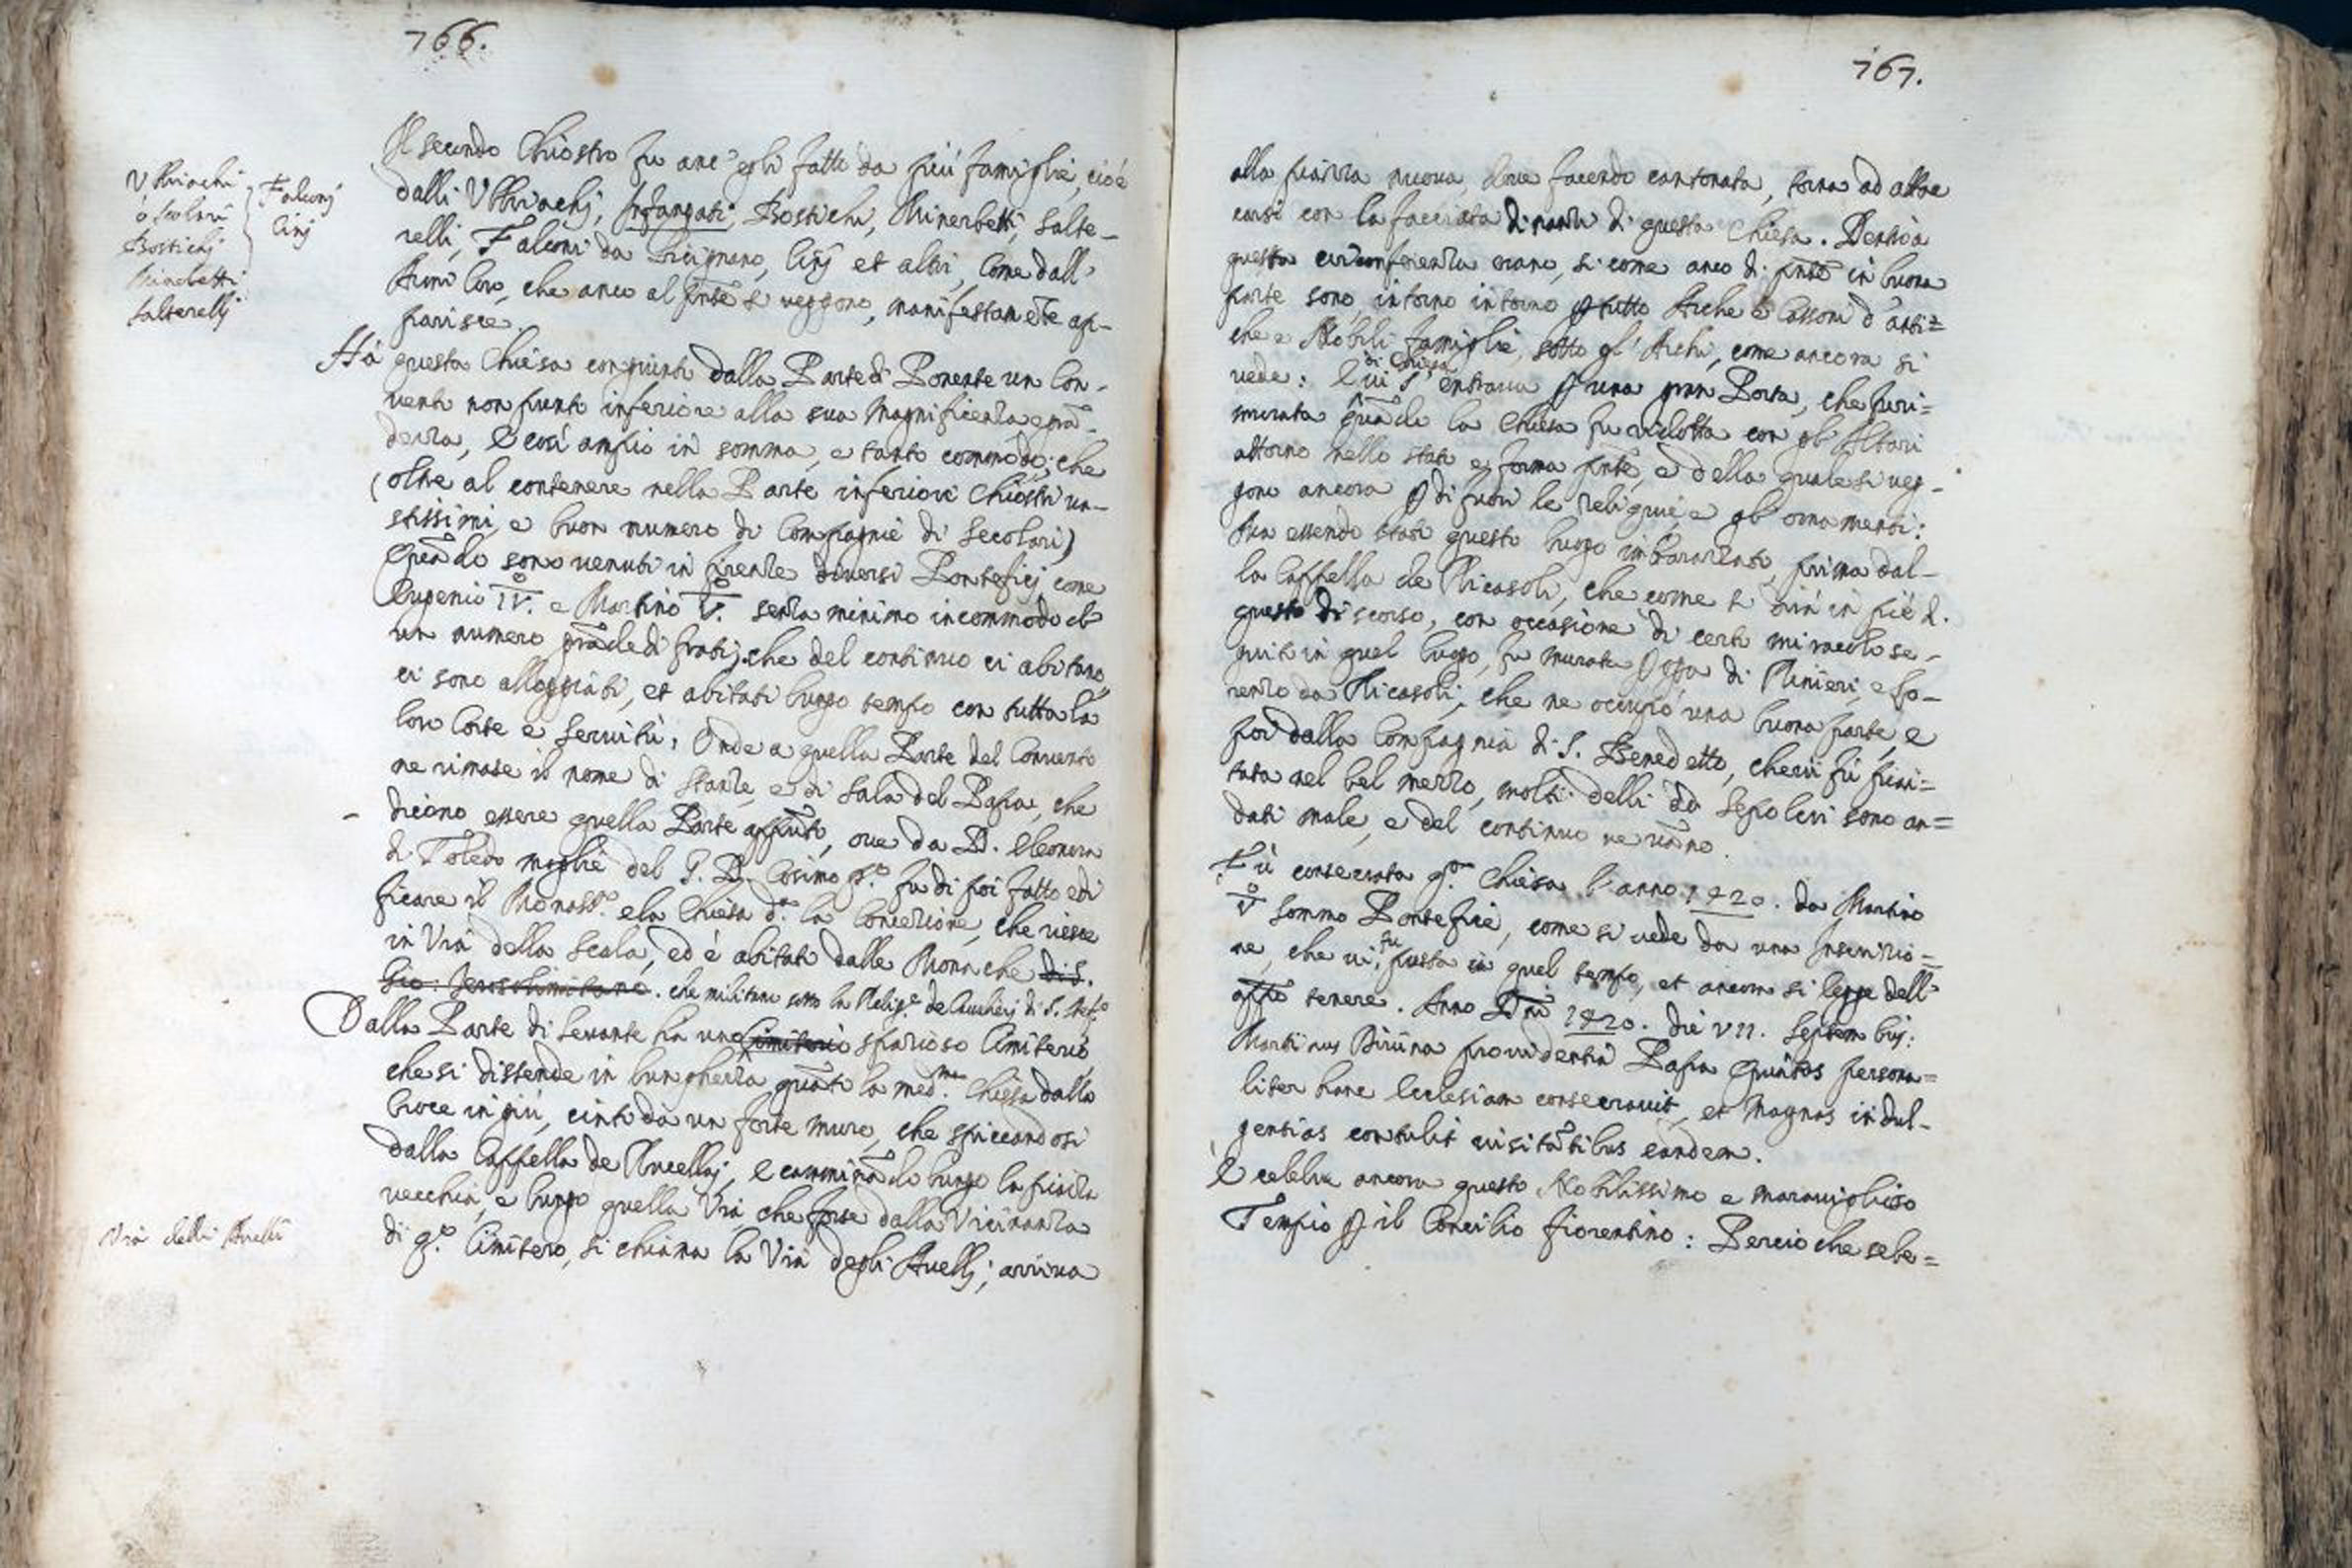 766.
Il secondo Chiostro fu anc' egli fatto da più famiglie, cioè
dalli Ubbriachj, Infangati, Bostichi, Minerbetti, Salte-
relli, Falconi da Bicignano, Cinj et altri, Come dall'
Armi loro, che anco al pnte si veggono, manifestamete ap-
parisce.
Ubbriachi
ò Scolari
Bostichj
Minerbetti
Salterellj
Falconj
Cinj
Hà questa Chiesa congiunto dalla Parte di Ponente un Con-
vento non punto inferiore alla sua Magnificenza e grã-
dezza, E così ampio in somma, e tanto commodo; che
(oltre al contenere nella Parte inferiore Chiostri va-
stissimi, e buon numero di Compagnie di Secolari)
Quãdo sono venuti in Firenze diversi Pontefici come
Eugenio IV.º e Martino V.º senza minimo incommodo di
un numero grãde di frati, che del continuo ci abitano,
ci sono alloggiati, et abitati lungo tempo con tutta la
loro Corte e Servitù; Onde a quella Parte del Convento
ne rimase il nome di Stanze, e di Sala del Papa, che
dicono essere quella Parte appũto, ove da D. Eleonora
di Toledo moglie del G. D. Cosimo P.º fu di poi fatto edi
ficare il Monast.º e la Chiesa d.ª la Concezione, che riesce
in Via della Scala, ed è abitato dalle Monache di S.
Gio: Jerosolimitane. che militano sotto la Relig.e de Cavalieri di S. Stef.º
Dalla Parte di Levante ha uno Cimiterio spazioso Cimiterio
che si distende in lunghezza quãto la med.ma Chiesa dalla
Croce in giù, cinto da un forte muro, che spiccandosi
dalla Cappella de Rucellaj, E camminãdo lungo la piazza
vecchia, e lungo quella Via, che forse dalla Vicinanza
di q.º Cimitero, si chiama la Via degli Avellj; arriva
Via delli Avelli
767.
alla piazza nuova, dove facendo cantonata, torna ad attac
carsi con la facciata dinanzi di questa Chiesa. Dentro a
questa circonferenza erano, si come anco di pnte in buona
parte sono, intorno intorno p tutto Arche e Cassoni d'anti=
che e Nobili famiglie, sotto gl' Archi, come ancora si
vede: E vi s' entrava p una gran Porta, che fu ri=
di Chiesa
murata quãdo la Chiesa fu ridotta con gl' Altari
attorno nello stato e forma pnte, e della quale si veg-
gono ancora p di fuori le reliquie e gl' ornamenti:
Ma essendo stato questo luogo imbarazzato, prima dal-
la Cappella de Ricasoli, che come si dirà in piè di
questo discorso, con occasione di certo miracolo se-
guito in quel luogo, fu murata p opa di Rinieri, e Lo-
renzo da Ricasoli, che ne occupò una buona parte, e
poi dalla Compagnia di S. Benedetto, che vi fù pian=
tata nel bel mezzo, molti delli dd. Sepolcri sono an=
dati male, e del continuo ne vãno.
Fù consecrata q.ta Chiesa l' anno 1420. da Martino
V.º Sommo Pontefice, come si vede da una Inscrizio=
ne, che vi fu posta in quel tempo, et ancora si legge dell'
appo tenere. Anno Dñi 1420. die VII. Septembris:
Martinus Diuina providentia Papa Quintus persona=
liter hanc Ecclesiam consecravit, et Magnas indul-
gentias contulit visitãtibus eandem.
È celebre ancora questo Nobilissimo e maraviglioso
Tempio p il Concilio Fiorentino: Perciò che sebe=